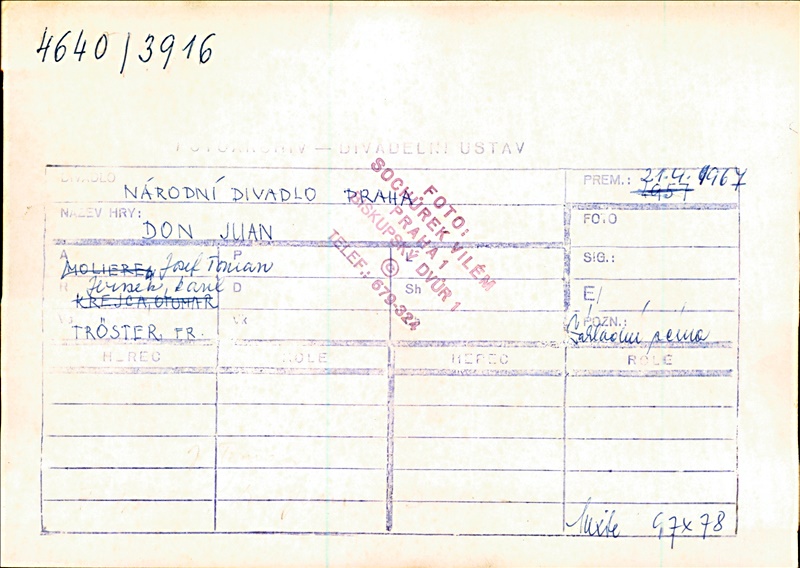 4640/3916
FOTOARCHIV — DIVADELNÍ ÚSTAV
DIVADLO
NÁRODNÍ DIVADLO PRAHA
PREM.: 21.4. 1967
1957
NÁZEV HRY:
DON JUAN
FOTO
FOTO:
SOCHŮREK VILÉM
PRAHA 1
BISKUPSKÝ DVŮR 1
TELEF.: 679-324
A
MOLIERE, Josef Topian
P
SIG.:
R
Jernek, Karel
KREJČA, OTOMAR
D
Sh
E/
TRÖSTER FR.
POZN.:
Základní scéna
HEREC
ROLE
HEREC
ROLE
97x78